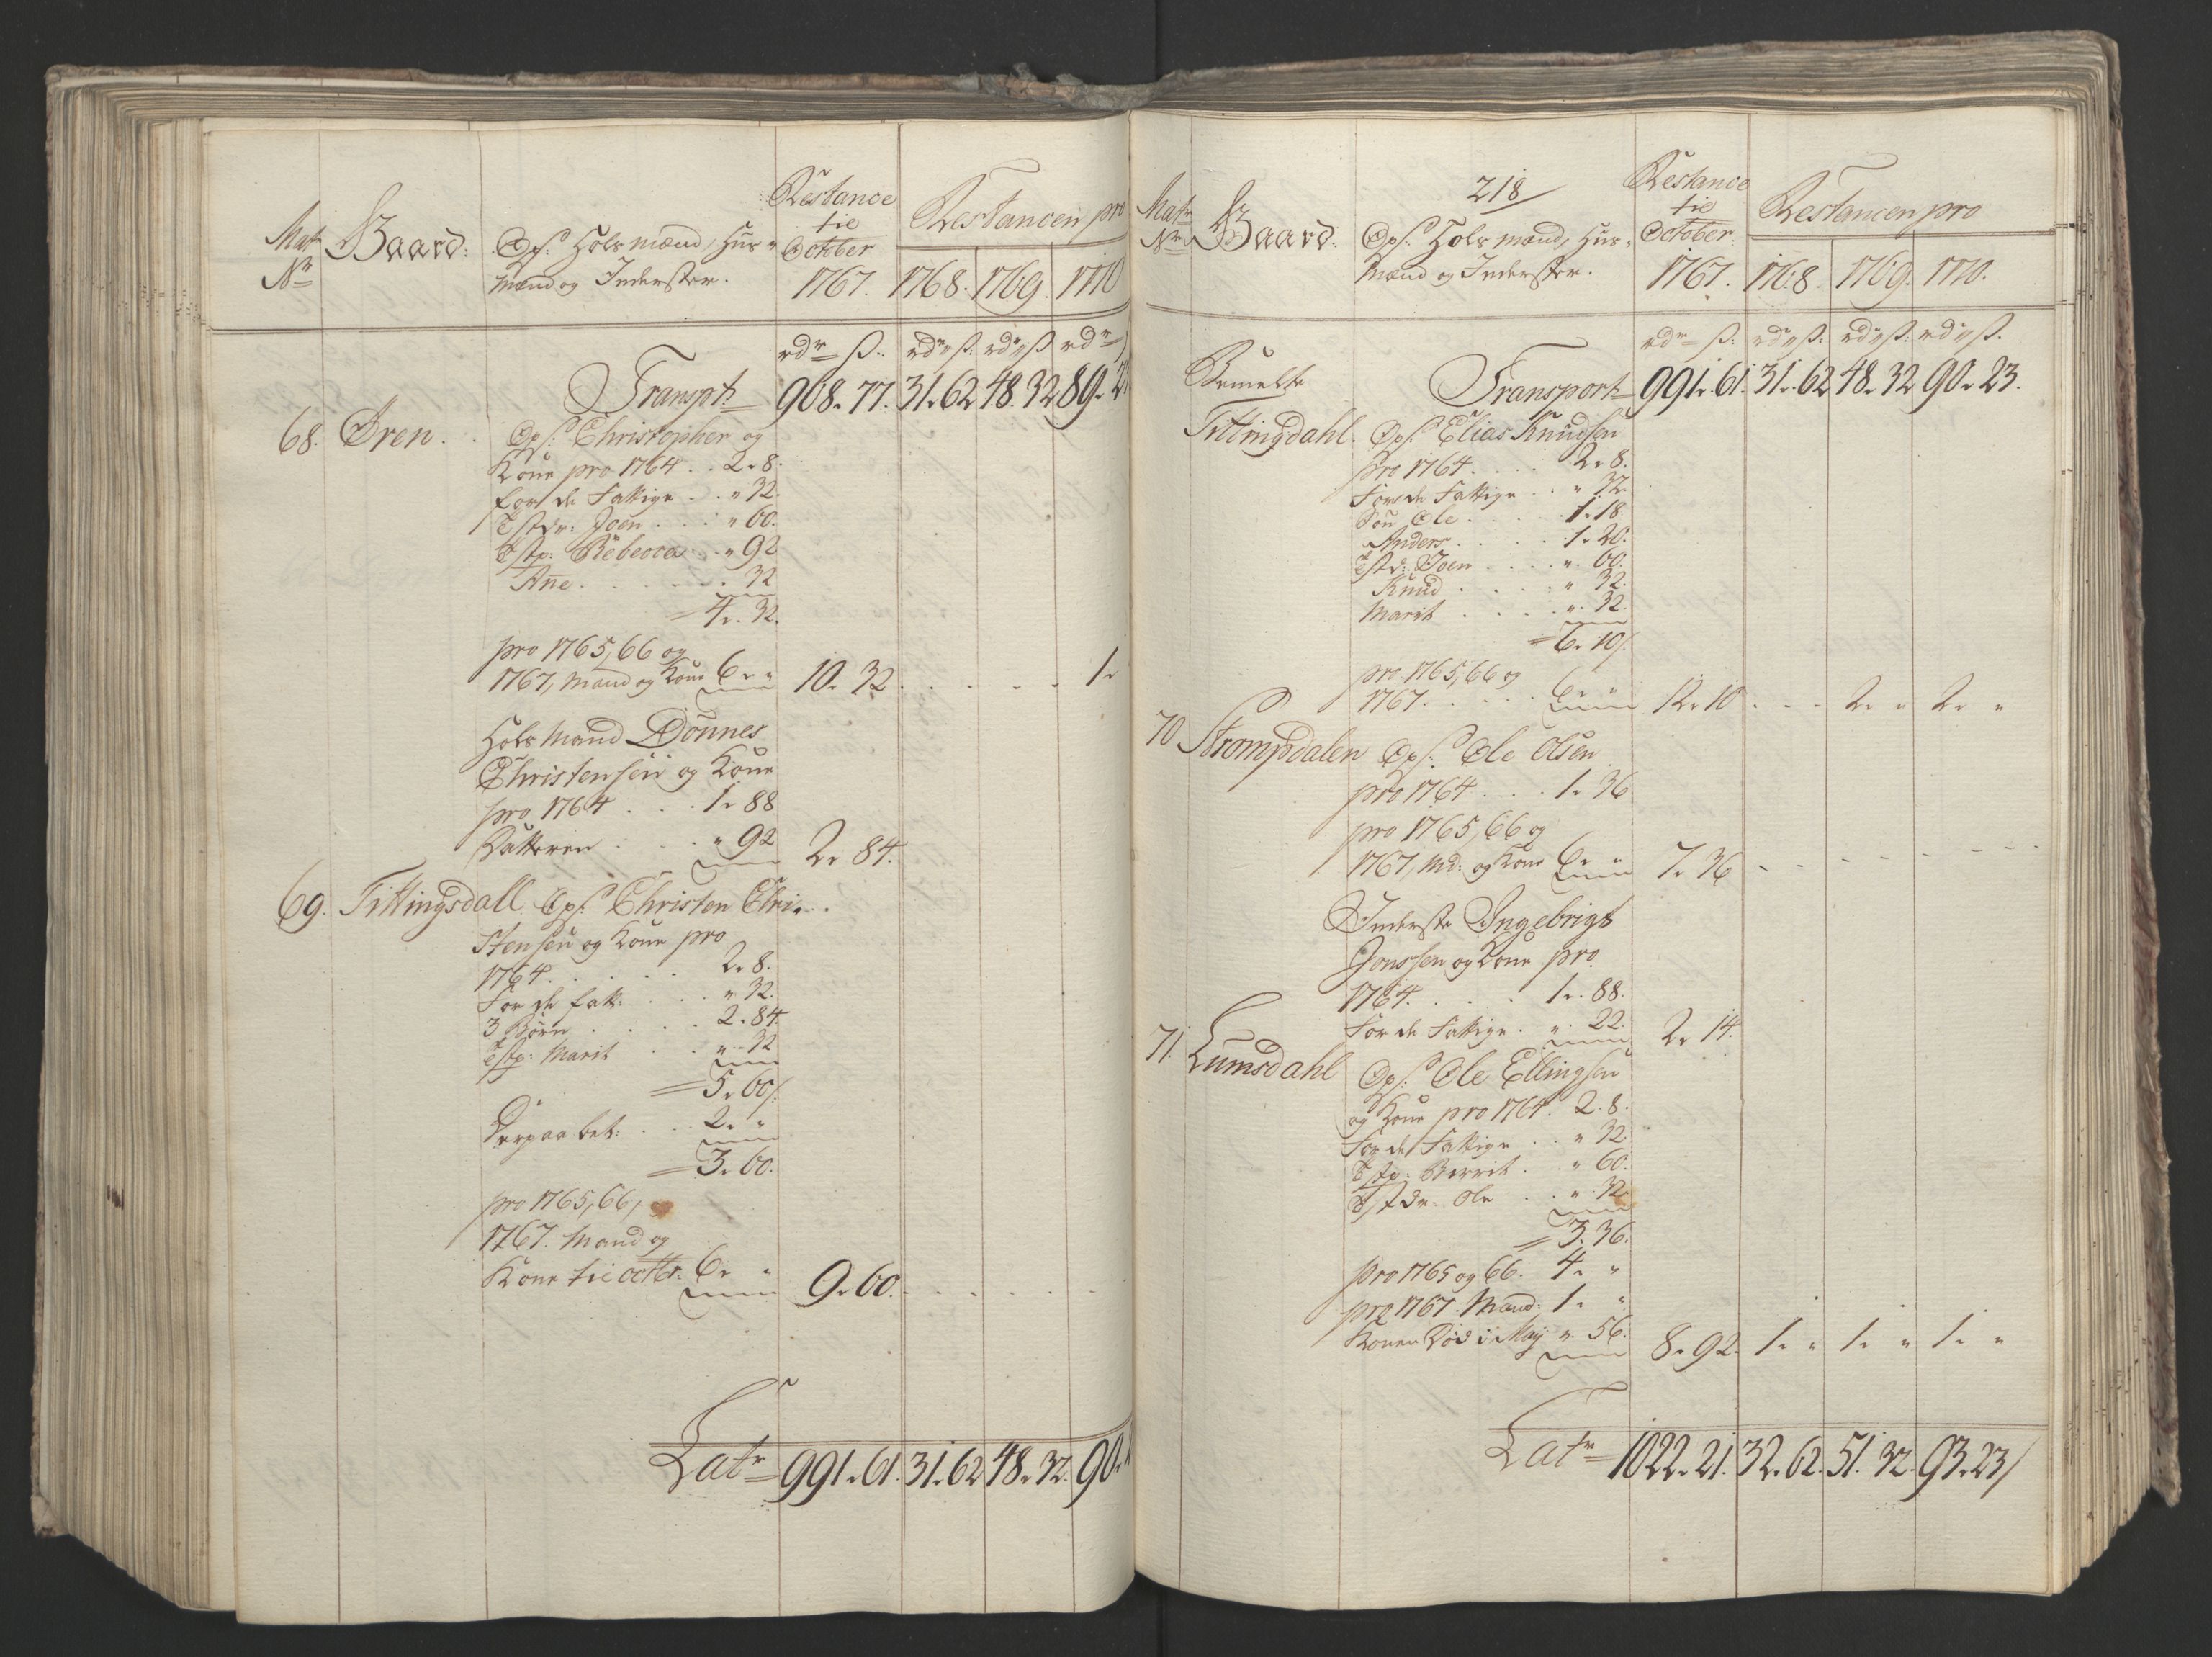 Mat: Nr
Gaard:
Ops: Holsmænd, Huus-
mænd og Inderster.
Restance
til
October
1767.
Restancen pro
1768. 1769. 1770
rdr ß. rdr ß. rdr ß rdr
Transpt: 968. 77. 31. 62 48. 32 89.
68. Øren. Ops: Christopher og
Kone pro 1764 . . 2. 8.
for de Fattige . . " 32.
Tstdr: Joen . . . " 60.
Tstp: Rebecca . . " 92
Ane . . . . . 32
4. 32.
pro 1765, 66 og
1767, Mand og Kone 6. " 10. 32 . . . . . 1.
Hols Mand Dønnes
Christensen og Kone
pro 1764 . . . 1. 88
Datteren . . . " 92 2. 84.
69. Tittingsdall Ops: Christen Chri-
stensen og Kone pro
1764 . . . . . 2. 8.
For de fatt: . . . " 32.
3 Børn . . . . 2. 84.
Tstp: Marit . . " 32
5. 60ß.
Derpaa bet: . . . 2. "
3. 60.
pro 1765, 66, og
1767. Mand og
Kone til octbr: 6. " 9. 60. . . . . .
Latr 991. 61. 31. 62 48. 32. 90.
218
Mat: Nr
Gaard.
Ops: Holsmænd, Huus-
mænd og Inderster.
Restance
til
October.
1767.
Restancen pro
1768. 1769. 1770.
rdr ß. rdr ß. rdr ß. rdr ß.
Bemelte Transport 991. 61. 31. 62 48. 32 90. 23.
Tittingdahl. Ops: Elias Knudsen
pro 1764 . . . . 2. 8.
For de Fattige . . " 32.
Søn Ole . . . . . 1. 18
Anders . . . . 1. 20.
Tstd: Joen . . . . ". 60.
Knud . . . . . " 32.
Marit . . . . ". 32.
6. 10ß.
pro 1765, 66 og
1767. . . . . 6. " 12. 10 . . . 2. " 2. "
70 Strompdalen Ops: Ole Olsen
pro 1764 . . . 1. 36
pro 1765, 66 og
1767, Md: og Kone 6. " 7. 36 - - - - - - -
Inderste Ingebrigt
Jonssen og Kone pro
1764. . . . 1. 88.
For de Fattige . ". 22. 2. 14.
71. Lumsdahl Ops: Ole Ellingsen
og Kone pro 1764. 2. 8.
For de Fattige . . " 32.
Tstp: Berrit . . " 60.
Tstdr. Ole . . ". 32
3. 36.
pro 1765 og 66. 4. "
pro 1767. Mand: 1. "
Konen død i May ". 56. 8. 92. 1. " 1. " 1. "
Latr 1022. 21. 32. 62. 51. 32. 93. 23/